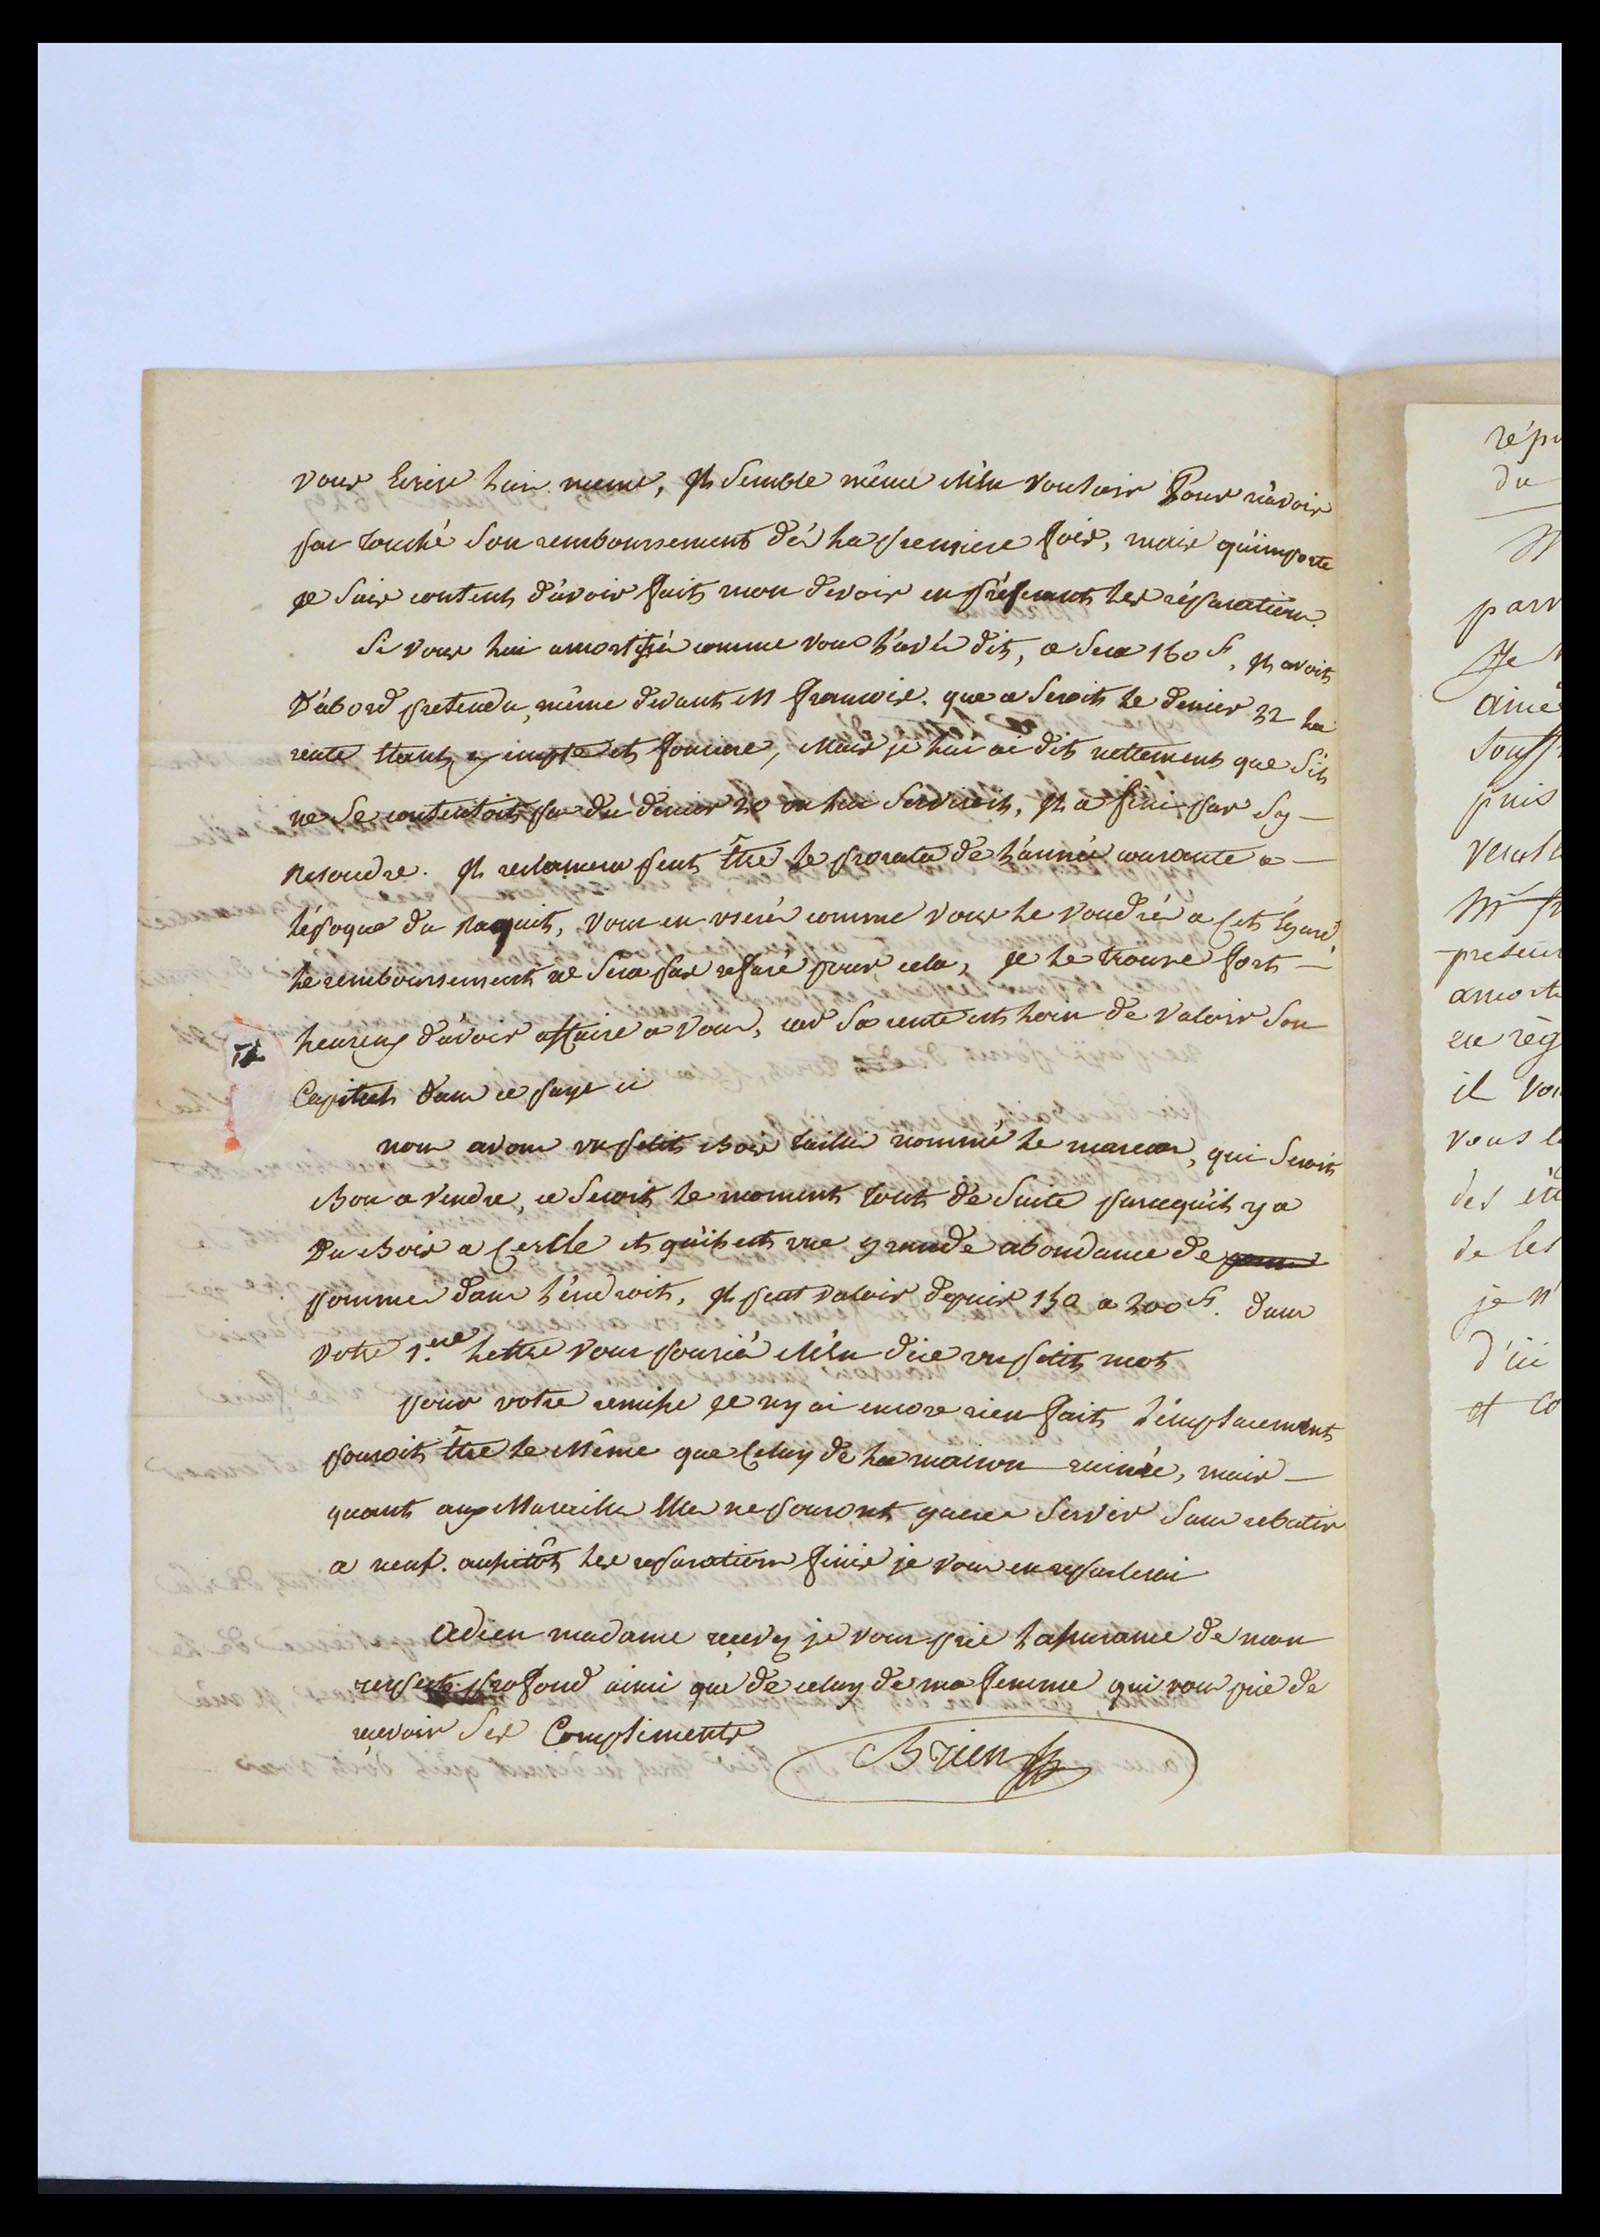 vous Ecrire lui meme, Il semble même m'en vouloir Pour n'avoir
pas touché son remboursement dés la premiere fois, mais qu'importe
je suis content d'avoir fait mon devoir en présant les réparations.
Si vous lui amortissés comme vous l'avés dit, ce sera 160 f, Il avoit
D'abord pretendu, même devant M François. que ce seroit le denier 22 la
rente Etant exempte et fonciere, Mais je lui ai dit nettement que s'il
ne se contentoit pas du denier 20 on lui serviroit, Il a fini par s'y
resoudre. Il reclamera peut Etre le prorata de l'année courante a
l'époque du raquit, vous en userés comme vous le voudrés a Cet Egard,
le remboursement ne sera pas refusé pour cela, je le trouve fort
heureux d'avoir affaire a vous, car sa rente est loin de valoir son
Capital Dans ce pays ci
nous avons un petit Bois taillis nommé le marcas, qui seroit
Bon a vendre, ce seroit le moment tout de suite parcequ'il y a
Du Bois a Cercle et qu'il est une grande abondance de
pommes dans l'endroit, Il peut valoir depuis 150 a 200 f. dans
Votre 1.ere lettre vous pouriés M'en dire un petit mot
pour votre remise je n'y ai encore rien fait l'emplacement
pouroit Etre le Même que Celuy de la maison ruinée, mais
quant aux Murailles Elles ne pouront guere servir sans rebatir
a neuf. aussitôt les reparations finies je vous en reparlerai
Adieu madame recevez je vous prie l'assurance de mon
respect profond ainsi que de celuy de ma femme qui vous prie de
recevoir ses Compliments
Brien
du
aimé
puis
amorti
en règ
il vou
vous l
des
de les
je n'
d'ici
et co